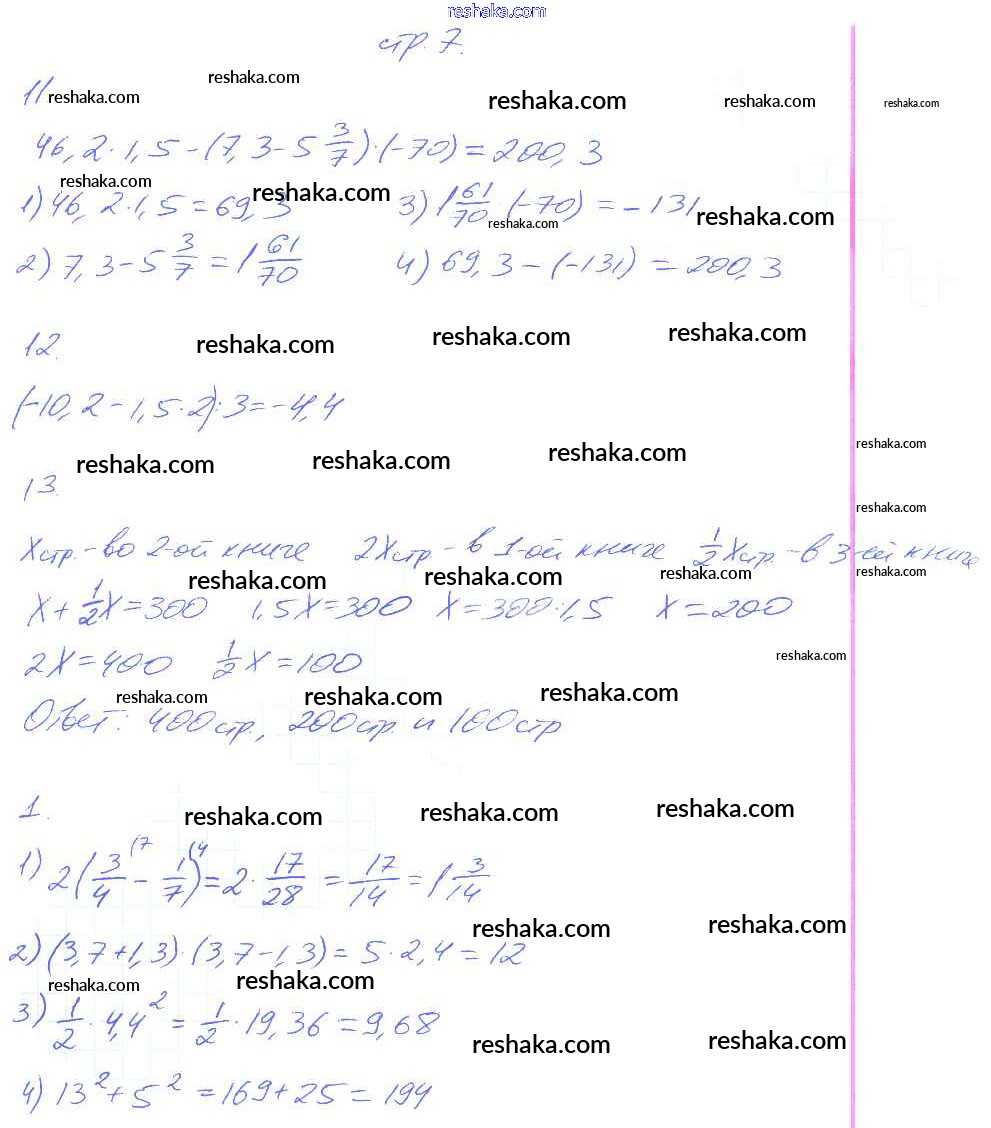 reshaka.com
стр. 7.
11 reshaka.com reshaka.com reshaka.com reshaka.com reshaka.com
46,2·1,5-(7,3-5 3/7)·(-70)=200,3
reshaka.com reshaka.com
1) 46,2·1,5=69,3 3) 1 61/70·(-70)=-131 reshaka.com
reshaka.com
2) 7,3-5 3/7=1 61/70 4) 69,3-(-131)=200,3
12. reshaka.com reshaka.com reshaka.com
(-10,2-1,5·2):3=-4,4
reshaka.com reshaka.com reshaka.com reshaka.com
13.
reshaka.com
Xстр.-во 2-ой книге 2Xстр-в 1-ой книге 1/2Xстр.-в 3-ей книге
reshaka.com reshaka.com reshaka.com reshaka.com
X+1/2X=300 1,5X=300 X=300:1,5 X=200
2X=400 1/2X=100 reshaka.com
reshaka.com reshaka.com reshaka.com
Ответ: 400стр., 200стр. и 100стр
1. reshaka.com reshaka.com reshaka.com
1) 2(3/4(7-1/7(4)=2·17/28=17/14=1 3/14
reshaka.com reshaka.com
2) (3,7+1,3)·(3,7-1,3)=5·2,4=12
reshaka.com reshaka.com
3) 1/2·4,4²=1/2·19,36=9,68
reshaka.com reshaka.com
4) 13²+5²=169+25=194